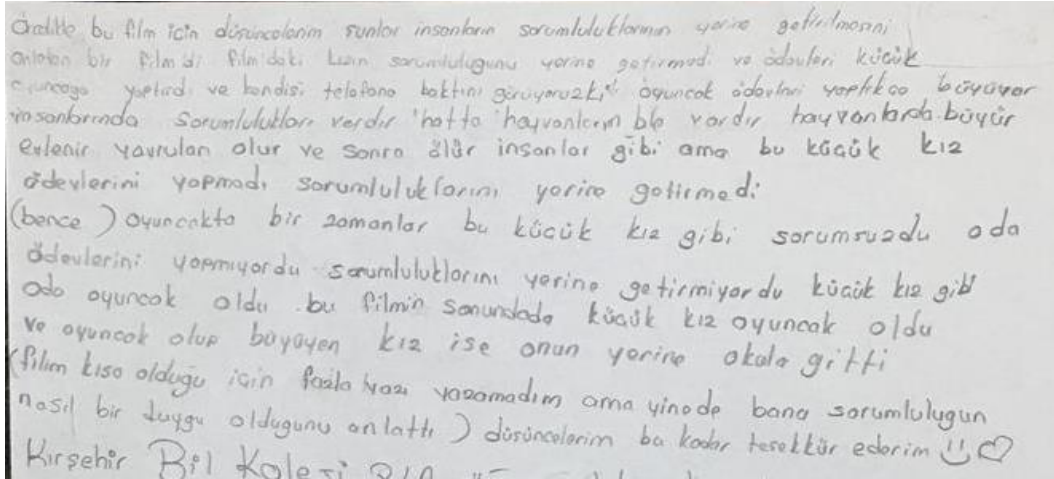 Öncelikle bu film için düşüncelerim şunlar insanların sorumluluklarının yerine getirilmesini
anlatan bir filmdi filmideki kızın sorumluluğunu yerine getirmedi ve ödevleri küçük
oyuncağa yaptırdı ve kendisi telefona baktını görüyoruzki oyuncak ödevleri yaptıkca büyüyor
insanlarında sorumlulukları vardır hatta hayvanların bile vardır hayvanlarda büyür
evlenir yavruları olur ve sonra ölür insanlar gibi ama bu küçük kız
ödevlerini yapmadı sorumluluklarını yerine getirmedi
(bence) oyuncakta bir zamanlar bu küçük kız gibi sorumsuzdu oda
ödevlerini yapmıyordu sorumluluklarını yerine getirmiyordu küçük kız gibi
oda oyuncak oldu bu filmin sonundada küçük kız oyuncak oldu
ve oyuncak olup büyüyen kız ise onun yerine okula gitti
(filim kısa olduğu için fazla yazı yazamadım ama yinede bana sorumluluğun
nasıl bir duygu olduğunu anlattı) düşüncelerim bu kadar teşekkür ederim
Kırşehir Bil Kalesi